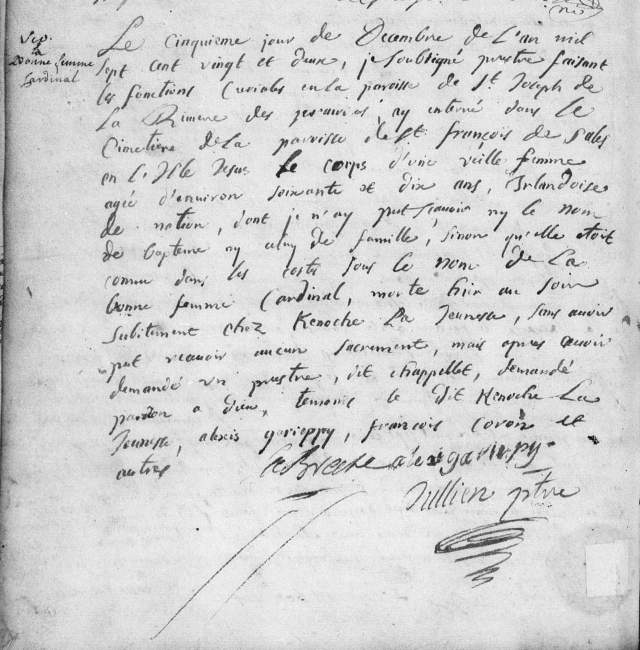 Sep.
la
Bonne femme
Cardinal
Le Cinquieme jour de Decembre de L'an mil
sept cent vingt et deux, je soubsigné prestre faisant
les fonctions Curiales en la paroisse de St. Joseph de
La Riviere des prairies, ay enterré dans le
Cimetiere de La paroisse de St. françois de Sales
en L'Isle Jesus Le corps d'une vieille femme
agée d'environ soixante et dix ans, Irlandoise
de nation, dont je n'ay peut sçavoir ny le nom
de bapteme ny celuy de famille, sinon qu'elle etoit
connue dans les costs sous le nom de La
bonne femme Cardinal, morte hier au soir
subitement chez Kenoche La Jeunesse, sans avoir
put recevoir aucun sacrement, mais apres avoir
demandé un prestre, dit chappellet, demandé
pardon a dieu, temoins le dit Kenoche La
Jeunesse, alexis gavieppy, françois Coron et
autres
alexis gariepy
Jullien ptre